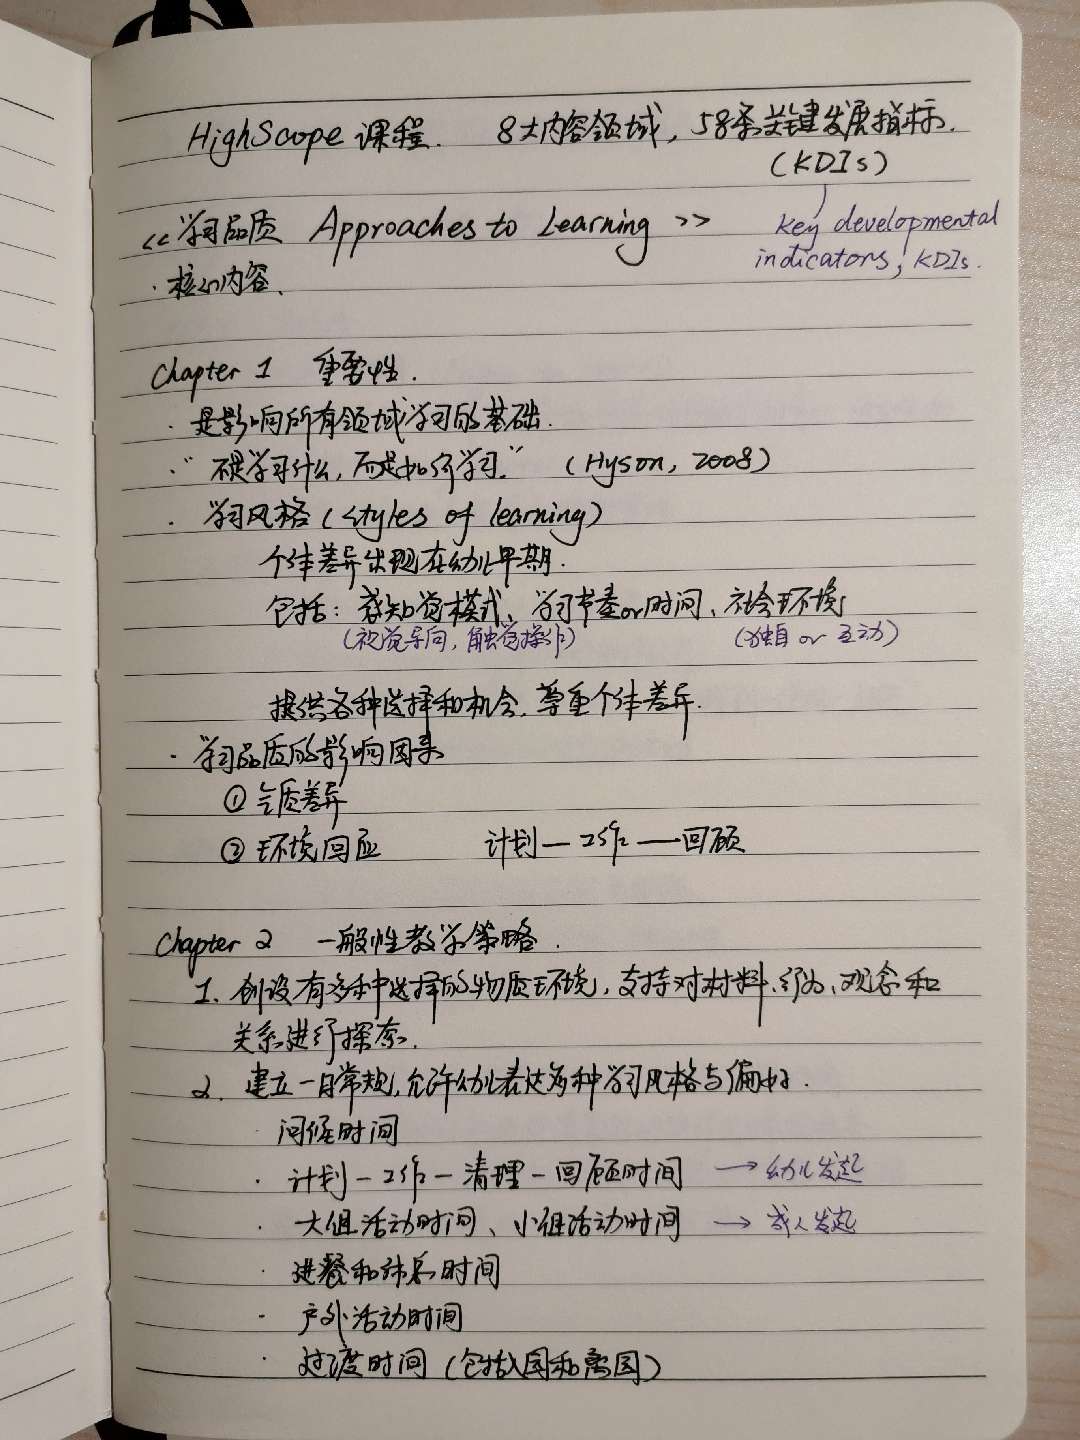 HighScope 课程. 8大内容领域, 58条关键发展指标.
(KDIs)
<<学习品质 Approaches to Learning>>
key developmental
indicators, KDIs.
·核心内容、
Chapter 1 重要性.
·是影响所有领域学习的基础.
·"不是学习什么,而是如何学习." (Hyson, 2008)
·学习风格(styles of learning)
个体差异出现在幼儿早期.
包括:感知觉模式、学习节奏or时间、社会环境
(视觉导向,触觉操作) (独自 or 互动)
提供各种选择和机会,尊重个体差异.
·学习品质的影响因素
①气质差异
②环境回应 计划—工作—回顾
Chapter 2 一般性教学策略.
1. 创设有多种选择的物质环境,支持对材料、行为、观念和
关系进行探索.
2. 建立一日常规,允许幼儿表达多种学习风格与偏好.
·问候时间
·计划—工作—清理—回顾时间 →幼儿发起
·大组活动时间、小组活动时间 →成人发起
·进餐和休息时间
·户外活动时间
·过渡时间(包括入园和离园)